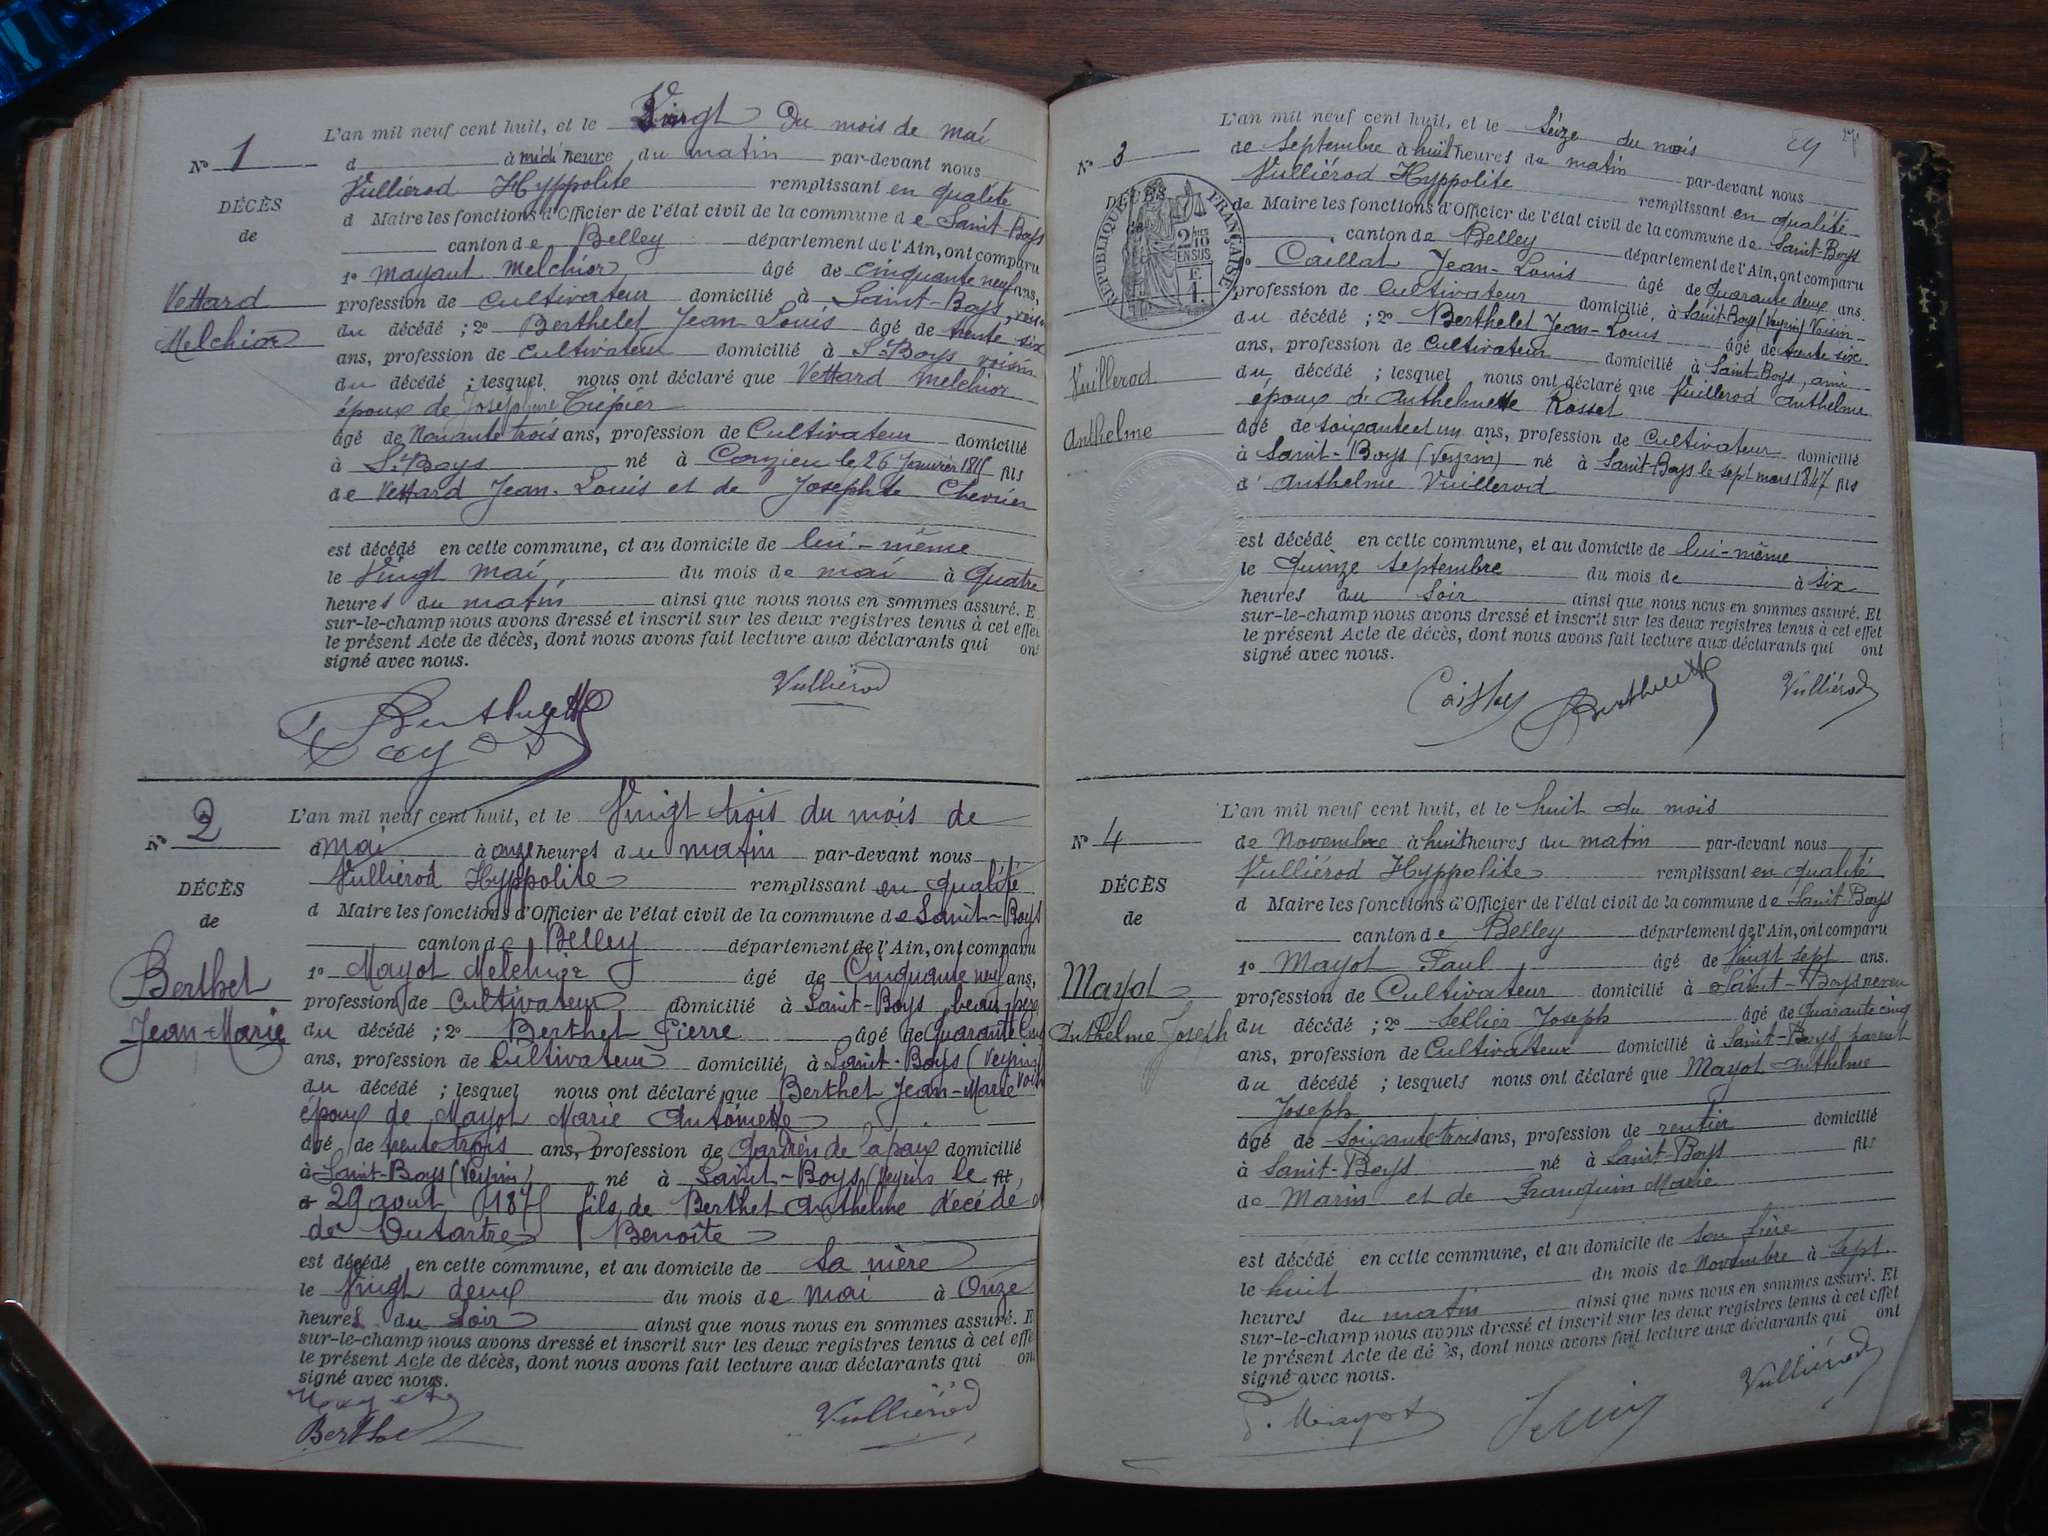 N° 1
DÉCÈS
de
Vettard
Melchior
L'an mil neuf cent huit, et le Vingt du mois de mai
d à midi heure du matin par-devant nous
Vulliérod Hyppolite remplissant en qualité
d Maire les fonctions d'Officier de l'état civil de la commune de Saint-Boys
canton de Belley département de l'Ain, ont comparu
1° Mayaut Melchior âgé de cinquante neuf ans,
profession de Cultivateur domicilié à Saint-Boys, voisin
du décédé ; 2° Berthelet Jean Louis âgé de trente six
ans, profession de Cultivateur domicilié à St Boys voisin
du décédé ; lesquel nous ont déclaré que Vettard Melchior
époux de Joséphine Trépier
âgé de Nonante trois ans, profession de Cultivateur domicilié
à St Boys né à Conzieu le 26 Janvier 1815 fils
de Vettard Jean-Louis et de Josephte Chevrier
est décédé en cette commune, et au domicile de lui-même
le Vingt mai du mois de mai à quatre
heures du matin ainsi que nous nous en sommes assuré. E
sur-le-champ nous avons dressé et inscrit sur les deux registres tenus à cet effet
le présent Acte de décès, dont nous avons fait lecture aux déclarants qui ont
signé avec nous.
Vulliérod
Berthelet
N° 2
DÉCÈS
de
Berthet
Jean-Marie
L'an mil neuf cent huit, et le Vingt trois du mois de
d mai à onze heures du matin par-devant nous
Vulliérod Hyppolite remplissant en qualité
d Maire les fonctions d'Officier de l'état civil de la commune de Saint-Boys
canton de Belley département de l'Ain, ont comparu
1° Mayot Melchior âgé de Cinquante neuf ans,
profession de Cultivateur domicilié à Saint-Boys, beau père
du décédé ; 2° Berthet Pierre âgé de Quarante cinq
ans, profession de Cultivateur domicilié à Saint-Boys (Veyrin)
du décédé ; lesquel nous ont déclaré que Berthet Jean-Marie voisin
époux de Mayot Marie Antoinette
âgé de trente trois ans, profession de Gardien de la paix domicilié
à Saint-Boys (Veyrin) né à Saint-Boys (Veyrin) le fils
29 aout 1875 fils de Berthet Anthelme décédé
de Dutartre Benoîte
est décédé en cette commune, et au domicile de sa mère
le Vingt deux du mois de mai à Onze
heures du soir ainsi que nous nous en sommes assuré. E
sur-le-champ nous avons dressé et inscrit sur les deux registres tenus à cet effe
le présent Acte de décès, dont nous avons fait lecture aux déclarants qui on
signé avec nous.
Berthet
Vulliérod
27
N° 3
DÉCÈS
RÉPUBLIQUE FRANÇAISE
2/10 EN SUS
F. 1
Vuillerod
Anthelme
L'an mil neuf cent huit, et le Seize du mois
de Septembre à huit heures du matin par-devant nous
Vulliérod Hyppolite remplissant en qualité
de Maire les fonctions d'Officier de l'état civil de la commune de Saint-Boys
canton de Belley département de l'Ain, ont comparu
1° Caillat Jean-Louis âgé de Quarante deux ans.
profession de Cultivateur domicilié à Saint-Boys (Veyrin) Voisin
du décédé ; 2° Berthelet Jean-Louis âgé de trente six
ans, profession de Cultivateur domicilié à Saint-Boys, ami
du décédé ; lesquel nous ont déclaré que Vuillerod Anthelme
époux d'Anthelmette Rosset
âgé de soixante et un ans, profession de Cultivateur domicilié
à Saint-Boys (Veyrin) né à Saint-Boys le sept mars 1847 fils
d' Anthelme Vuillerod
est décédé en cette commune, et au domicile de lui-même
le Quinze septembre du mois de à six
heures du soir ainsi que nous nous en sommes assuré. Et
sur-le-champ nous avons dressé et inscrit sur les deux registres tenus à cet effet
le présent Acte de décès, dont nous avons fait lecture aux déclarants qui ont
signé avec nous.
Berthelet Vulliérod
N° 4
DÉCÈS
de
Mayot
Anthelme Joseph
L'an mil neuf cent huit, et le huit du mois
de Novembre à huit heures du matin par-devant nous
Vulliérod Hyppolite remplissant en qualité
d Maire les fonctions d'Officier de l'état civil de la commune de Saint-Boys
canton de Belley département de l'Ain, ont comparu
1° Mayot Paul âgé de Vingt sept ans.
profession de Cultivateur domicilié à Saint-Boys neveu
du décédé ; 2° Sellier Joseph âgé de Quarante cinq
ans, profession de Cultivateur domicilié à Saint-Boys parent
du décédé ; lesquels nous ont déclaré que Mayot Anthelme
Joseph
âgé de Soixante trois ans, profession de rentier domicilié
à Saint-Boys né à Saint-Boys fils
de Marin et de Franquin Marie
est décédé en cette commune, et au domicile de son frère
le huit du mois de Novembre à sept
heures du matin ainsi que nous nous en sommes assuré. Et
sur-le-champ nous avons dressé et inscrit sur les deux registres tenus à cet effet
le présent Acte de décès, dont nous avons fait lecture aux déclarants qui ont
signé avec nous.
P. Mayot
Vulliérod